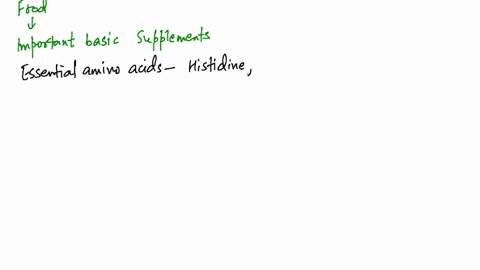 Food
↓
Important basic Supplements
Essential amino acids - Histidine,